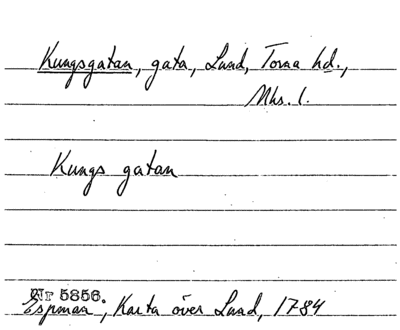 Kungsgatan, gata, Lund, Torna hd.,
Mhs. l.
Kungs gatan
Nr 5856.
Espman, Karta över Lund, 1784